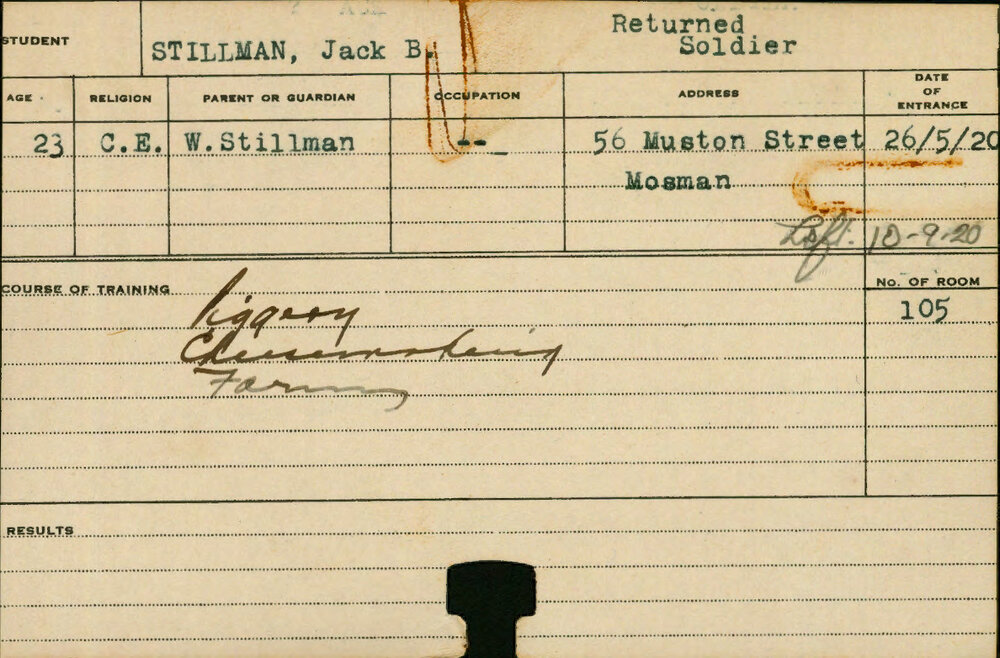 STUDENT
STILLMAN, Jack B.
Returned
Soldier
AGE
RELIGION
PARENT OR GUARDIAN
OCCUPATION
ADDRESS
DATE
OF
ENTRANCE
23 C.E. W.Stillman -- 56 Muston Street 26/5/20
Mosman
Left. 10-9-20
COURSE OF TRAINING
No. OF ROOM
Piggery
105
Cheesemaking
Farming
RESULTS